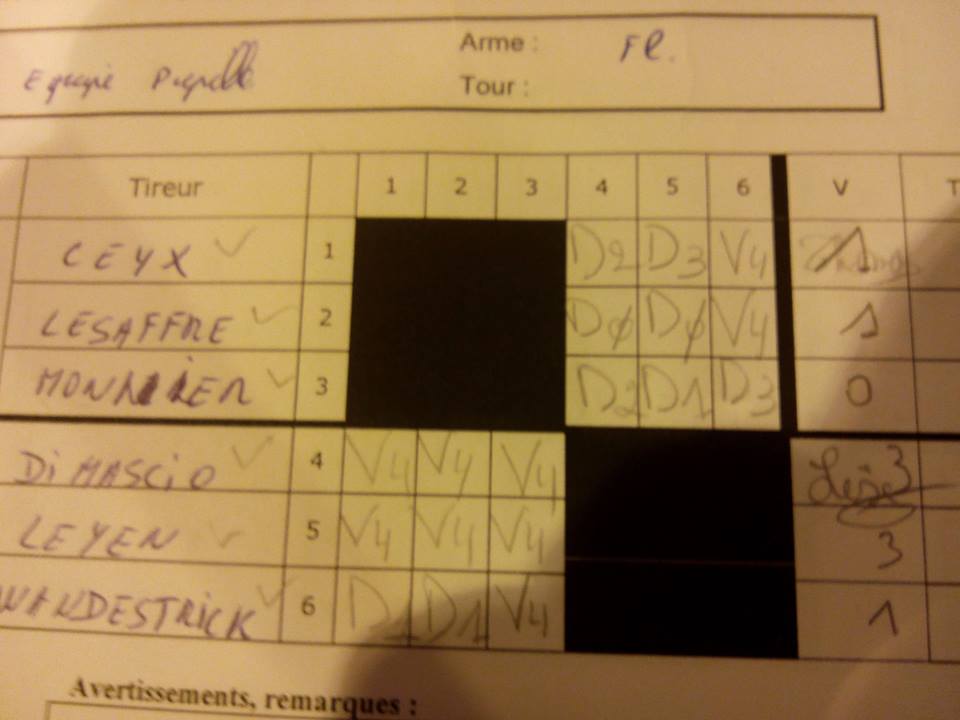 Arme : Fl.
Equipe Pupille
Tour :
Tireur 1 2 3 4 5 6 V T
CEYX 1 D2 D3 V4 1
LESAFFRE 2 D0 D0 V4 1
3 D2 D1 D3 0
Di MASCiO 4 V4 V4 V4 3
LEYEN 5 V4 V4 V4 3
VANDESTRICK 6 D1 D1 V4 1
Avertissements, remarques :